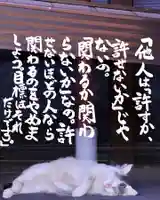 「他人は、許すか、
許せないか」じゃ
ない。
「関わるか関わ
らないか」なの。許
せないほどの人なら
関わるのをやめま
しょう。目標はそれ
だけです。